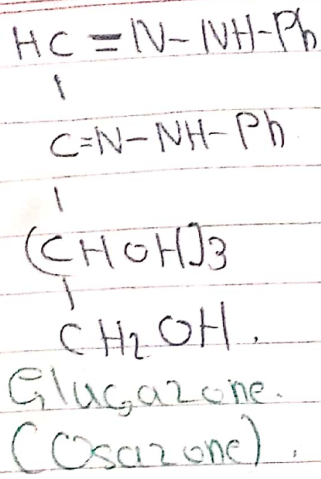 HC=N-NH-Ph
|
C=N-NH-Ph
|
(CHOH)3
|
CH2OH.
Glucazone.
(Osazone).